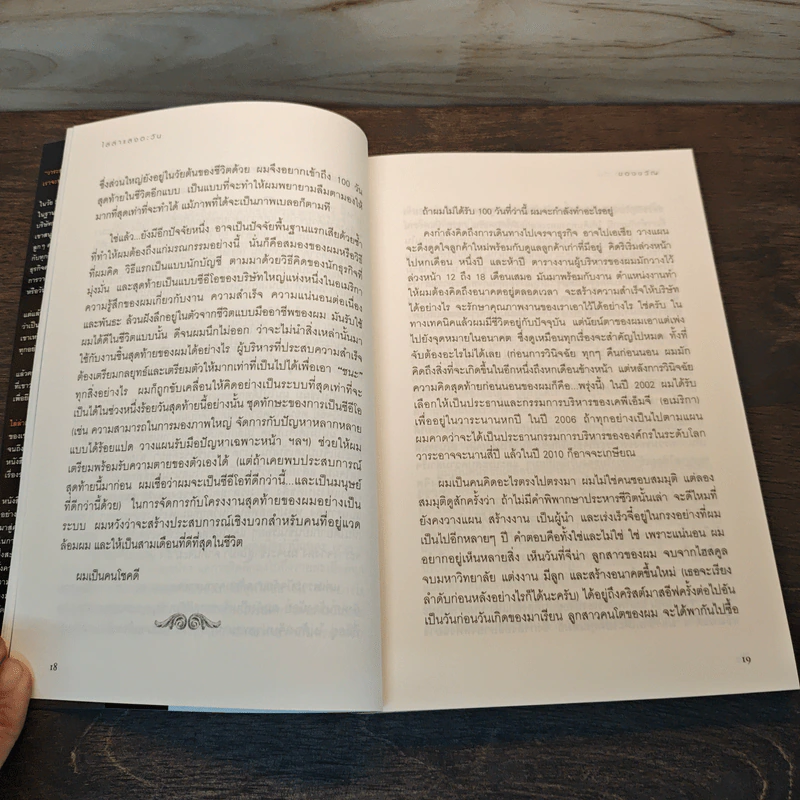 ไล่ล่าแสงตะวัน
ซึ่งส่วนใหญ่ยังอยู่ในวัยต้นของชีวิตด้วย ผมจึงอยากเข้าถึง 100 วัน
สุดท้ายในชีวิตอีกแบบ เป็นแบบที่จะทำให้ผมพยายามลืมตามองให้
มากที่สุดเท่าที่จะทำได้ แม้ภาพที่ได้จะเป็นภาพเบลอก็ตามที
ใช่แล้ว...ยังมีอีกปัจจัยหนึ่ง อาจเป็นปัจจัยพื้นฐานแรกเสียด้วยซ้ำ
ที่ทำให้ผมต้องถึงแก่มรณกรรมอย่างนี้ นั่นก็คือสมองของผมหรือวิธี
ที่ผมคิด วิธีแรกเป็นแบบนักบัญชี ตามมาด้วยวิธีคิดของนักธุรกิจที่
มุ่งมั่น และสุดท้ายเป็นแบบซีอีโอของบริษัทใหญ่แห่งหนึ่งในอเมริกา
ความรู้สึกของผมเกี่ยวกับงาน ความสำเร็จ ความแน่นอนต่อเนื่อง
และพันธะ ล้วนฝังลึกอยู่ในตัวจากชีวิตแบบมืออาชีพของผม มันรับใช้
ผมได้ดีในชีวิตแบบนั้น ดีจนผมนึกไม่ออก ว่าจะไม่นำสิ่งเหล่านั้นมา
ใช้กับงานชิ้นสุดท้ายของผมได้อย่างไร ผู้บริหารที่ประสบความสำเร็จ
ต้องเตรียมกลยุทธ์และเตรียมตัวให้มากเท่าที่เป็นไปได้เพื่อเอา "ชนะ"
ทุกสิ่งอย่างไร ผมก็ถูกขับเคลื่อนให้คิดอย่างเป็นระบบที่สุดเท่าที่จะ
เป็นได้ในช่วงหนึ่งร้อยวันสุดท้ายนี้อย่างนั้น ชุดทักษะของการเป็นซีอีโอ
(เช่น ความสามารถในการมองภาพใหญ่ จัดการกับปัญหาหลากหลาย
แบบได้ร้อยแปด วางแผนรับมือปัญหาเฉพาะหน้า ฯลฯ) ช่วยให้ผม
เตรียมพร้อมรับความตายของตัวเองได้ (แต่ถ้าเคยพบประสบการณ์
สุดท้ายนี้มาก่อน ผมเชื่อว่าผมจะเป็นซีอีโอที่ดีกว่านี้...และเป็นมนุษย์
ที่ดีกว่านี้ด้วย) ในการจัดการกับโครงงานสุดท้ายของผมอย่างเป็น
ระบบ ผมหวังว่าจะสร้างประสบการณ์เชิงบวกสำหรับคนที่อยู่แวด
ล้อมผม และให้เป็นสามเดือนที่ดีที่สุดในชีวิต
ผมเป็นคนโชคดี
18
ถ้าผมไม่ได้รับ 100 วันที่ว่านี้ ผมจะกำลังทำอะไรอยู่
คงกำลังคิดถึงการเดินทางไปเจรจาธุรกิจ อาจไปเอเชีย วางแผน
จะดึงดูดใจลูกค้าใหม่พร้อมกับดูแลลูกค้าเก่าที่มีอยู่ คิดริเริ่มล่วงหน้า
ไปหกเดือน หนึ่งปี และห้าปี ตารางงานผู้บริหารของผมมักวางไว้
ล่วงหน้า 12 ถึง 18 เดือนเสมอ มันมาพร้อมกับงาน ตำแหน่งงานทำ
ให้ผมต้องคิดถึงอนาคตอยู่ตลอดเวลา จะสร้างความสำเร็จให้บริษัท
ได้อย่างไร จะรักษาคุณภาพงานของเราเอาไว้ได้อย่างไร ใช่ครับ ใน
ทางเทคนิคแล้วผมมีชีวิตอยู่กับปัจจุบัน แต่นัยน์ตาของผมเอาแต่เพ่ง
ไปยังจุดหมายในอนาคต ซึ่งดูเหมือนทุกเรื่องจะสำคัญไปหมด ทั้งที่
จับต้องอะไรไม่ได้เลย (ก่อนการวินิจฉัย ทุกๆ คืนก่อนนอน ผมมัก
คิดถึงสิ่งที่จะเกิดขึ้นในอีกหนึ่งถึงหกเดือนข้างหน้า แต่หลังการวินิจฉัย
ความคิดสุดท้ายก่อนนอนของผมก็คือ...พรุ่งนี้) ในปี 2002 ผมได้รับ
เลือกให้เป็นประธานและกรรมการบริหารของเคพีเอ็มจี (อเมริกา)
เพื่ออยู่ในวาระนานหกปี ในปี 2006 ถ้าทุกอย่างเป็นไปตามแผน
ผมคาดว่าจะได้เป็นประธานกรรมการบริหารขององค์กรในระดับโลก
วาระอาจจะนานสี่ปี แล้วในปี 2010 ก็อาจจะเกษียณ
ผมเป็นคนคิดอะไรตรงไปตรงมา ผมไม่ใช่คนชอบสมมุติ แต่ลอง
สมมุติดูสักครั้งว่า ถ้าไม่มีคำพิพากษาประหารชีวิตนั้นเล่า จะดีไหมที่
ยังคงวางแผน สร้างงาน เป็นผู้นำ และเร่งเร็วจี๋อยู่ในกรงอย่างที่ผม
เป็นไปอีกหลายๆ ปี คำตอบคือทั้งใช่และไม่ใช่ ใช่ เพราะแน่นอน ผม
อยากอยู่เห็นหลายสิ่ง เห็นวันที่จีน่า ลูกสาวของผม จบจากไฮสคูล
จบมหาวิทยาลัย แต่งงาน มีลูก และสร้างอนาคตขึ้นใหม่ (เธอจะเรียง
ลำดับก่อนหลังอย่างไรก็ได้นะครับ) ได้อยู่ถึงคริสต์มาสอีฟครั้งต่อไปอัน
เป็นวันก่อนวันเกิดของมาเรียน ลูกสาวคนโตของผม จะได้พากันไปซื้อ
19